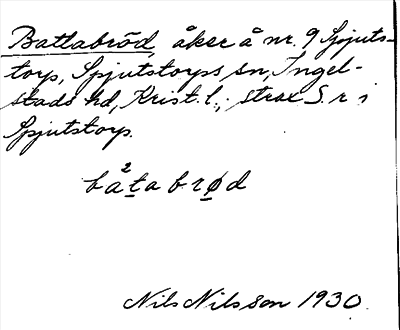 Battabröd, åker å nr. 9 Spjuts-
torp, Spjutstorps sn, Ingel-
stads hd, Krist. l.; strax S. r i
Spjutstorp.
bå²tabrød
Nils Nilsson 1930.